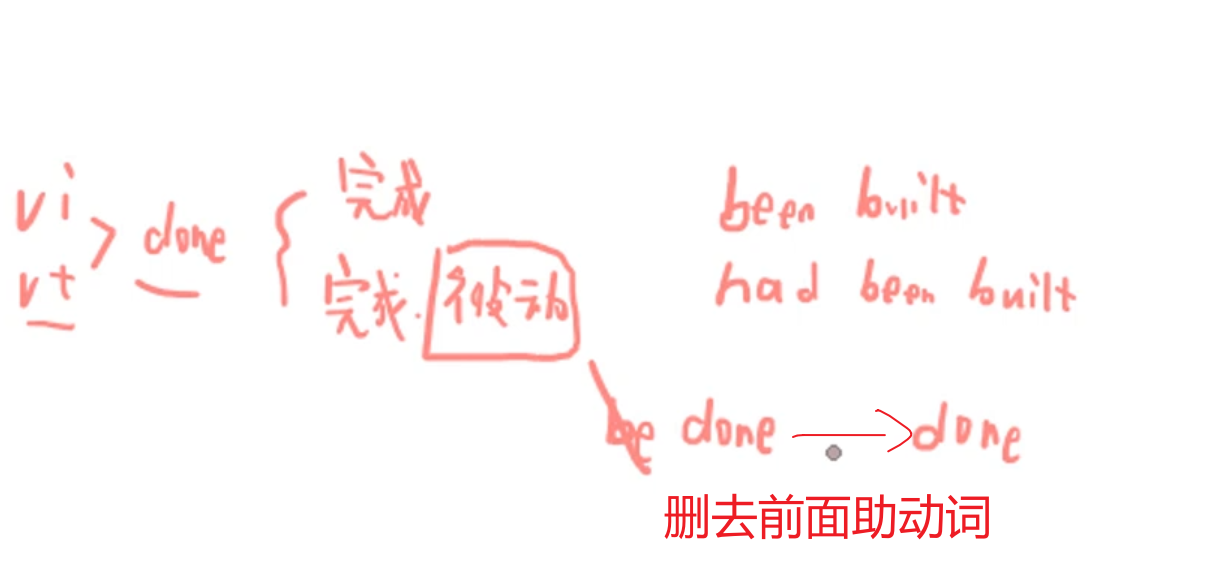 vi
vt
done
完成
完成.被动
been built
had been built
be done → done
删去前面助动词